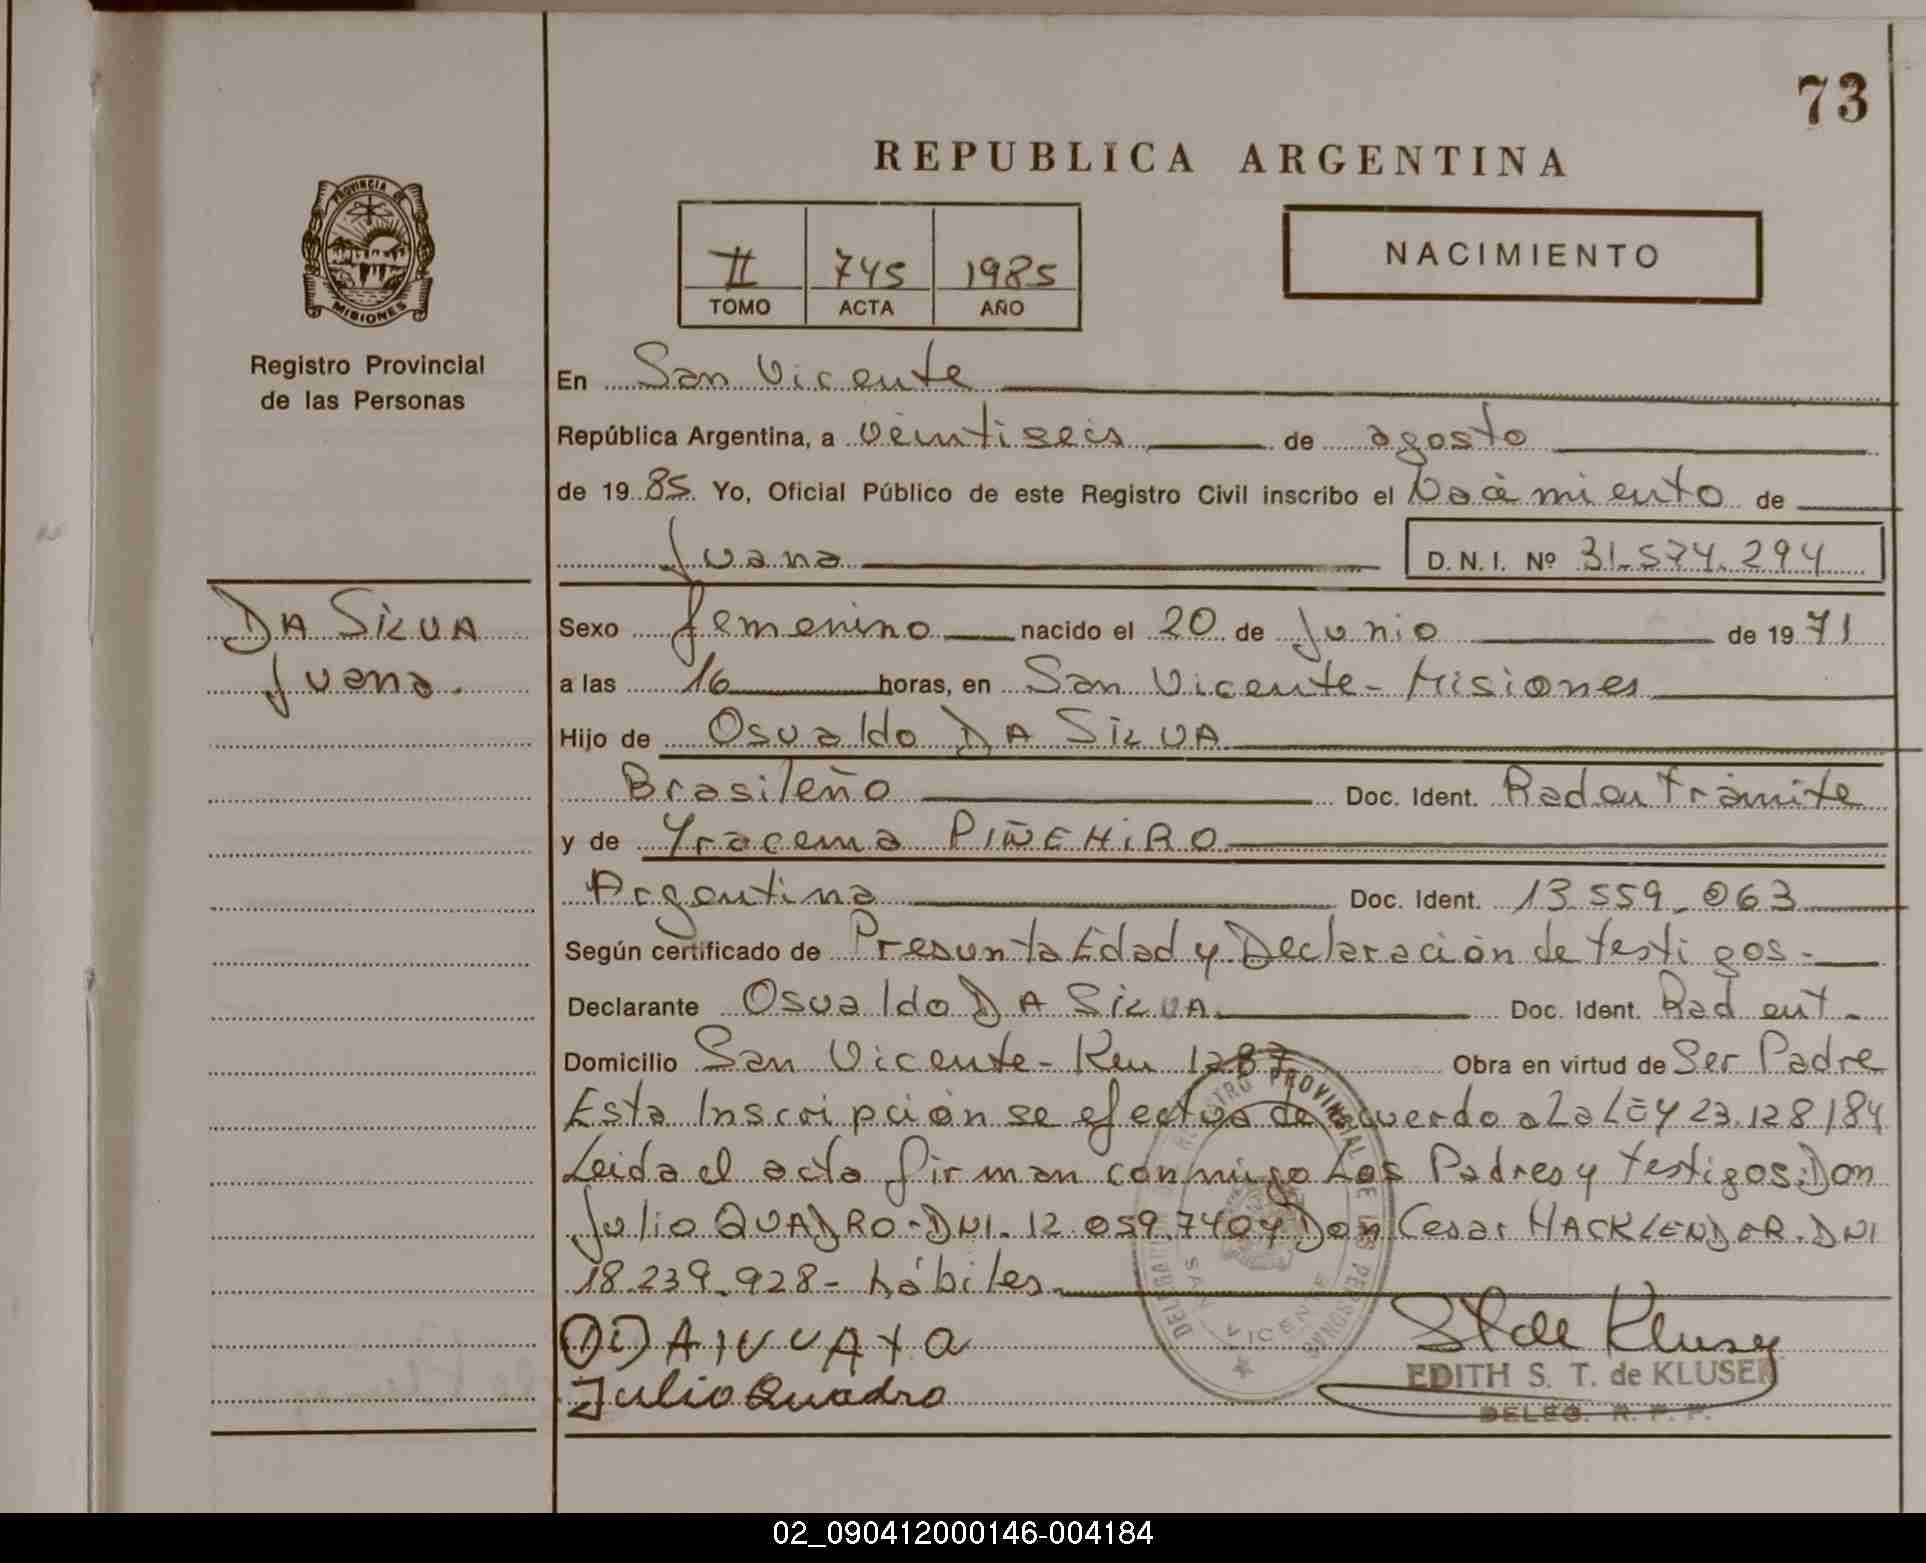 73
REPUBLICA ARGENTINA
PROVINCIA DE
MISIONES
Registro Provincial
de las Personas
II 745 1985
TOMO ACTA AÑO
NACIMIENTO
En San Vicente
República Argentina, a veintiseis de agosto
de 1985 Yo, Oficial Público de este Registro Civil inscribo el Nacimiento de
Juana D.N.I. Nº 31.574.294
DA SILVA
Juana.
Sexo femenino nacido el 20 de Junio de 1971
a las 16 horas, en San Vicente - Misiones
Hijo de Osvaldo DA SILVA
Brasileño Doc. Ident. Rad en Trámite
y de Yracema PIÑEHIRO
Argentina Doc. Ident. 13.559.063
Según certificado de Presunta Edad y Declaración de testigos.-
Declarante Osvaldo DA SILVA Doc. Ident. Rad ent.
Domicilio San Vicente - Km 1287 Obra en virtud de Ser Padre
Esta Inscripción se efectua de acuerdo a La LEY 23.128/84
Leida el acta firman conmigo Los Padres y testigos: Don
Julio QUADRO - DNI. 12.059.740 y Don Cesar HACKLENDER. DNI
18.239.928 - hábiles.
Julio Quadro
ST de Kluser
EDITH S. T. de KLUSER
DELEG. R. P. P.
DELEGACION REGISTRO PROVINCIAL DE LAS PERSONAS
SAN VICENTE
02_090412000146-004184